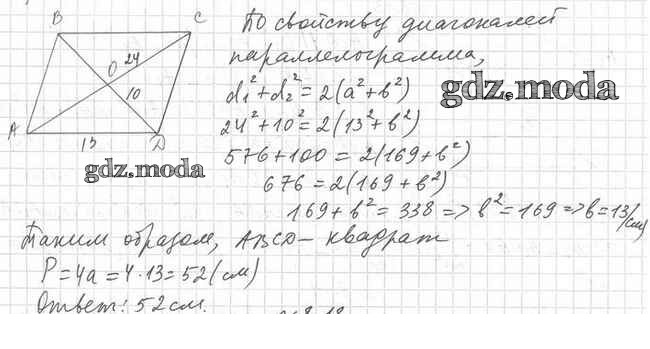 B C
24
O
10
A D
13
gdz.moda
По свойству диагоналей
параллелограмма,
d₁² + d₂² = 2(a² + b²)
gdz.moda
24² + 10² = 2(13² + b²)
576 + 100 = 2(169 + b²)
676 = 2(169 + b²)
169 + b² = 338 => b² = 169 => b = 13 (см)
Таким образом, ABCD – квадрат
P = 4a = 4 · 13 = 52 (см)
Ответ: 52 см.